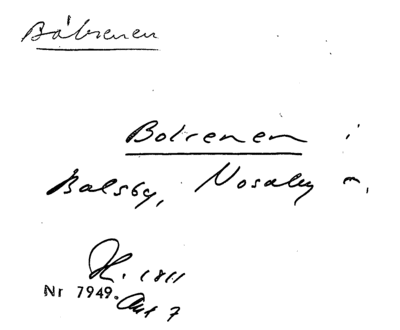 Båtrenen
Botrenen i
Balsby, Nosaby
1811
Nr 7949. Akt 7